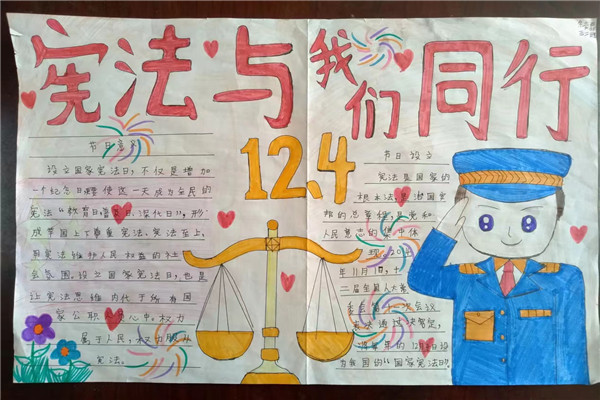 宪法与我们同行
12.4
节日意义
设立国家宪法日,不仅是增加
一个纪念日,使这一天成为全民的
宪法“教育日、普及日、深化日”,形
成举国上下尊重宪法、宪法至上,
用宪法维护人民权益的社
会氛围。设立国家宪法日,也是
让宪法思维内代于所有国
家公职人员心中。权力
属于人民,权力服从
宪法。
节日设立
宪法是国家的
根本法,是治国安
邦的总章程,是党和
人民意志的集中体
现。2014
年11月1日,十
二届全国人大常
委会第十一次会议
表决通过决定,
将每年的12月4日设
为我国的“国家宪法日”。